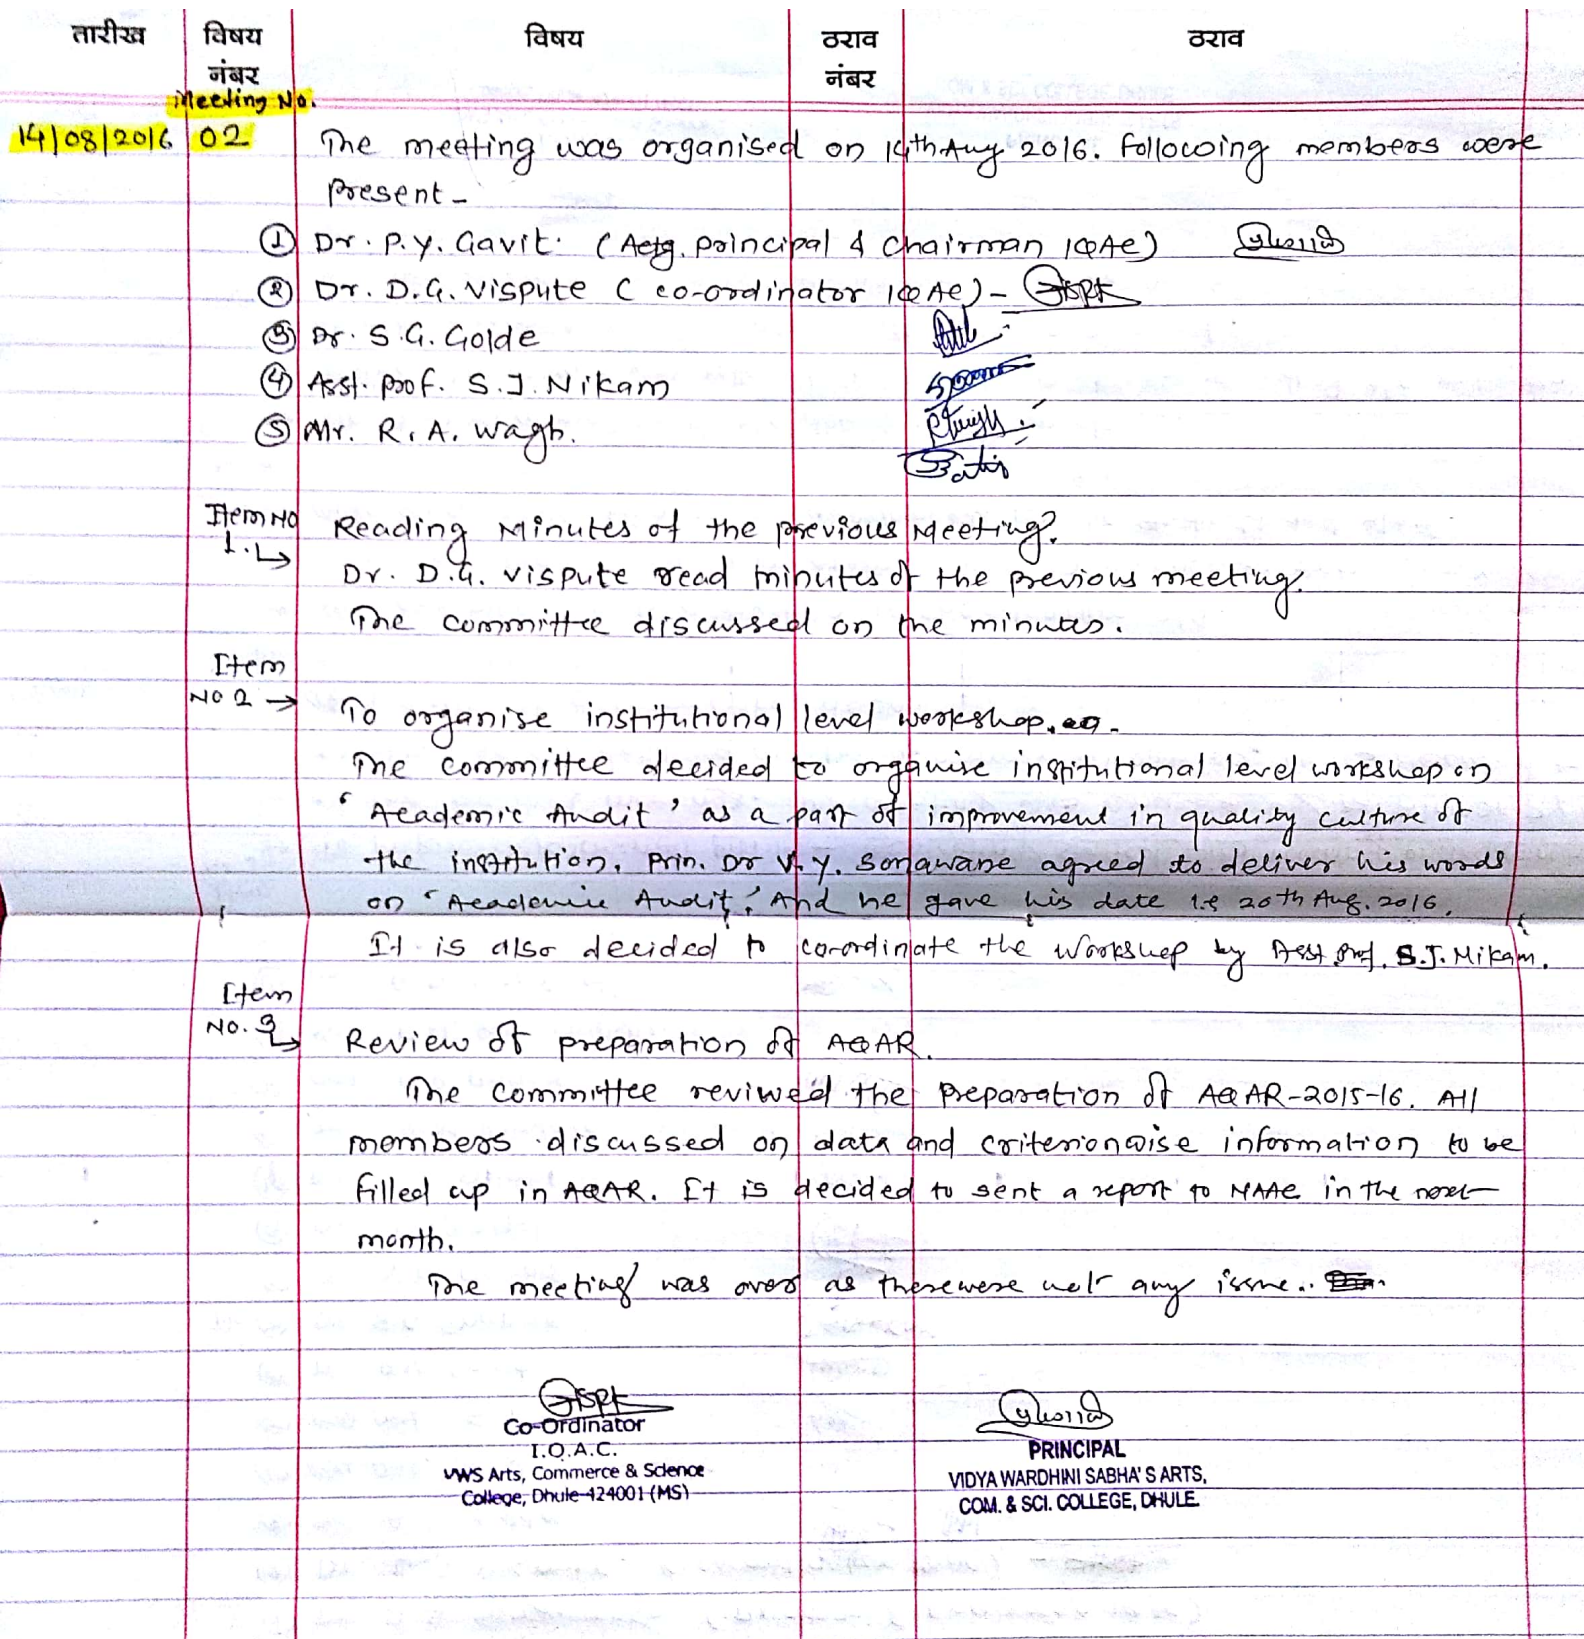 तारीख विषय नंबर विषय ठराव नंबर ठराव
Meeting No.
14/08/2016 02 The meeting was organised on 14th Aug 2016. Following members were
Present -
① Dr. P.Y. Gavit. (Actg. principal & Chairman IQAC)
② Dr. D.G. Vispute (co-ordinator IQAC) -
③ Dr. S.G. Golde
④ Asst. prof. S.J. Nikam
⑤ Mr. R.A. Wagh.
Item No 1. Reading Minutes of the previous Meeting.
Dr. D.G. Vispute read minutes of the previous meeting.
The committee discussed on the minutes.
Item
No 2 → To organise institutional level workshop.
The committee decided to organise institutional level workshop on
'Academic Audit' as a part of improvement in quality culture of
the institution. Prin. Dr V.Y. Sonawane agreed to deliver his words
on 'Academic Audit.' And he gave his date i.e 20th Aug. 2016.
It is also decided to co-ordinate the workshop by Asst Prof. S.J. Nikam.
Item
No. 3 Review of preparation of AQAR.
The Committee reviwed the preparation of AQAR-2015-16. All
members discussed on data and criterionwise information to be
filled up in AQAR. It is decided to sent a report to NAAC in the next
month.
The meeting was over as there were not any issue..
Co-Ordinator
I.Q.A.C.
VWS Arts, Commerce & Science
College, Dhule-424001 (MS)
PRINCIPAL
VIDYA WARDHINI SABHA'S ARTS,
COM. & SCI. COLLEGE, DHULE.